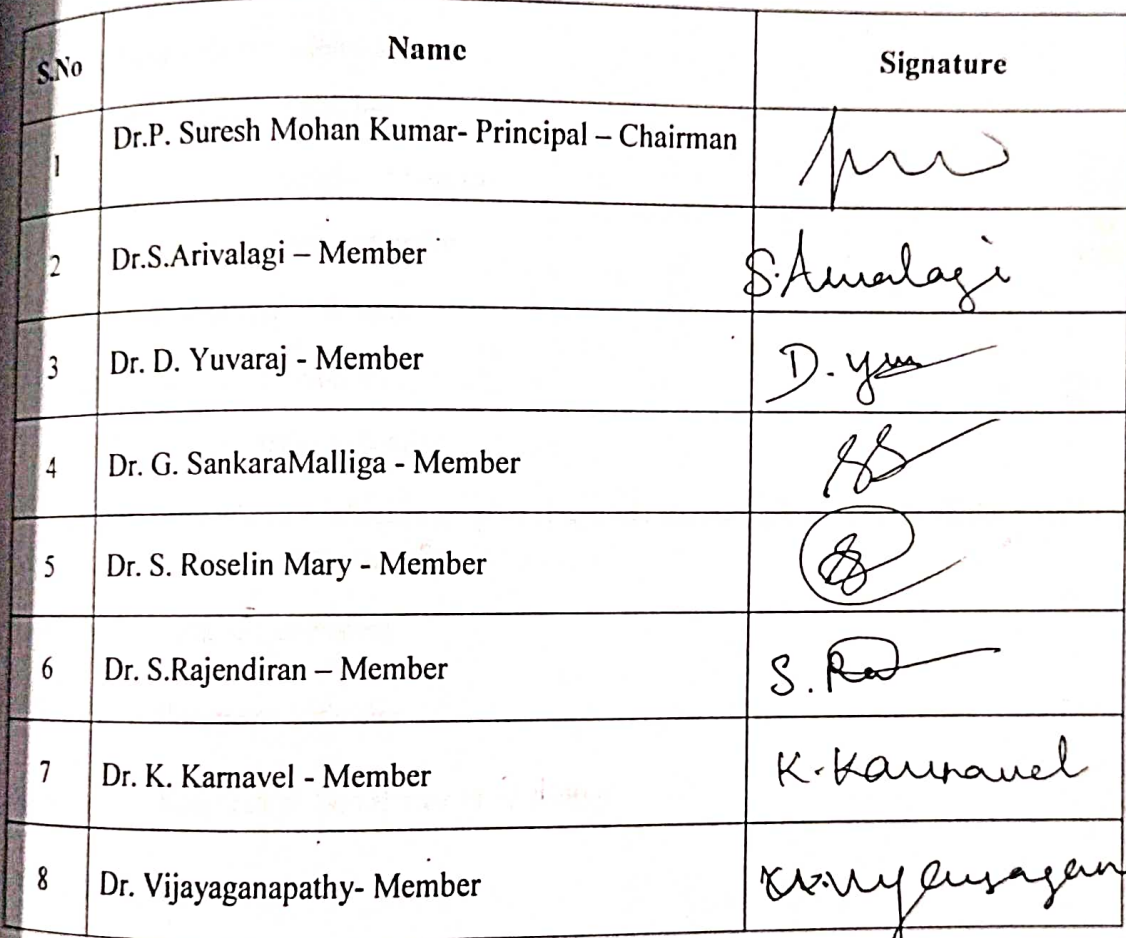 S.No Name Signature
1 Dr.P. Suresh Mohan Kumar- Principal – Chairman
2 Dr.S.Arivalagi – Member S.Arivalagi
3 Dr. D. Yuvaraj - Member D. Yuv
4 Dr. G. SankaraMalliga - Member
5 Dr. S. Roselin Mary - Member
6 Dr. S.Rajendiran – Member S.
7 Dr. K. Karnavel - Member K. Karnavel
8 Dr. Vijayaganapathy- Member